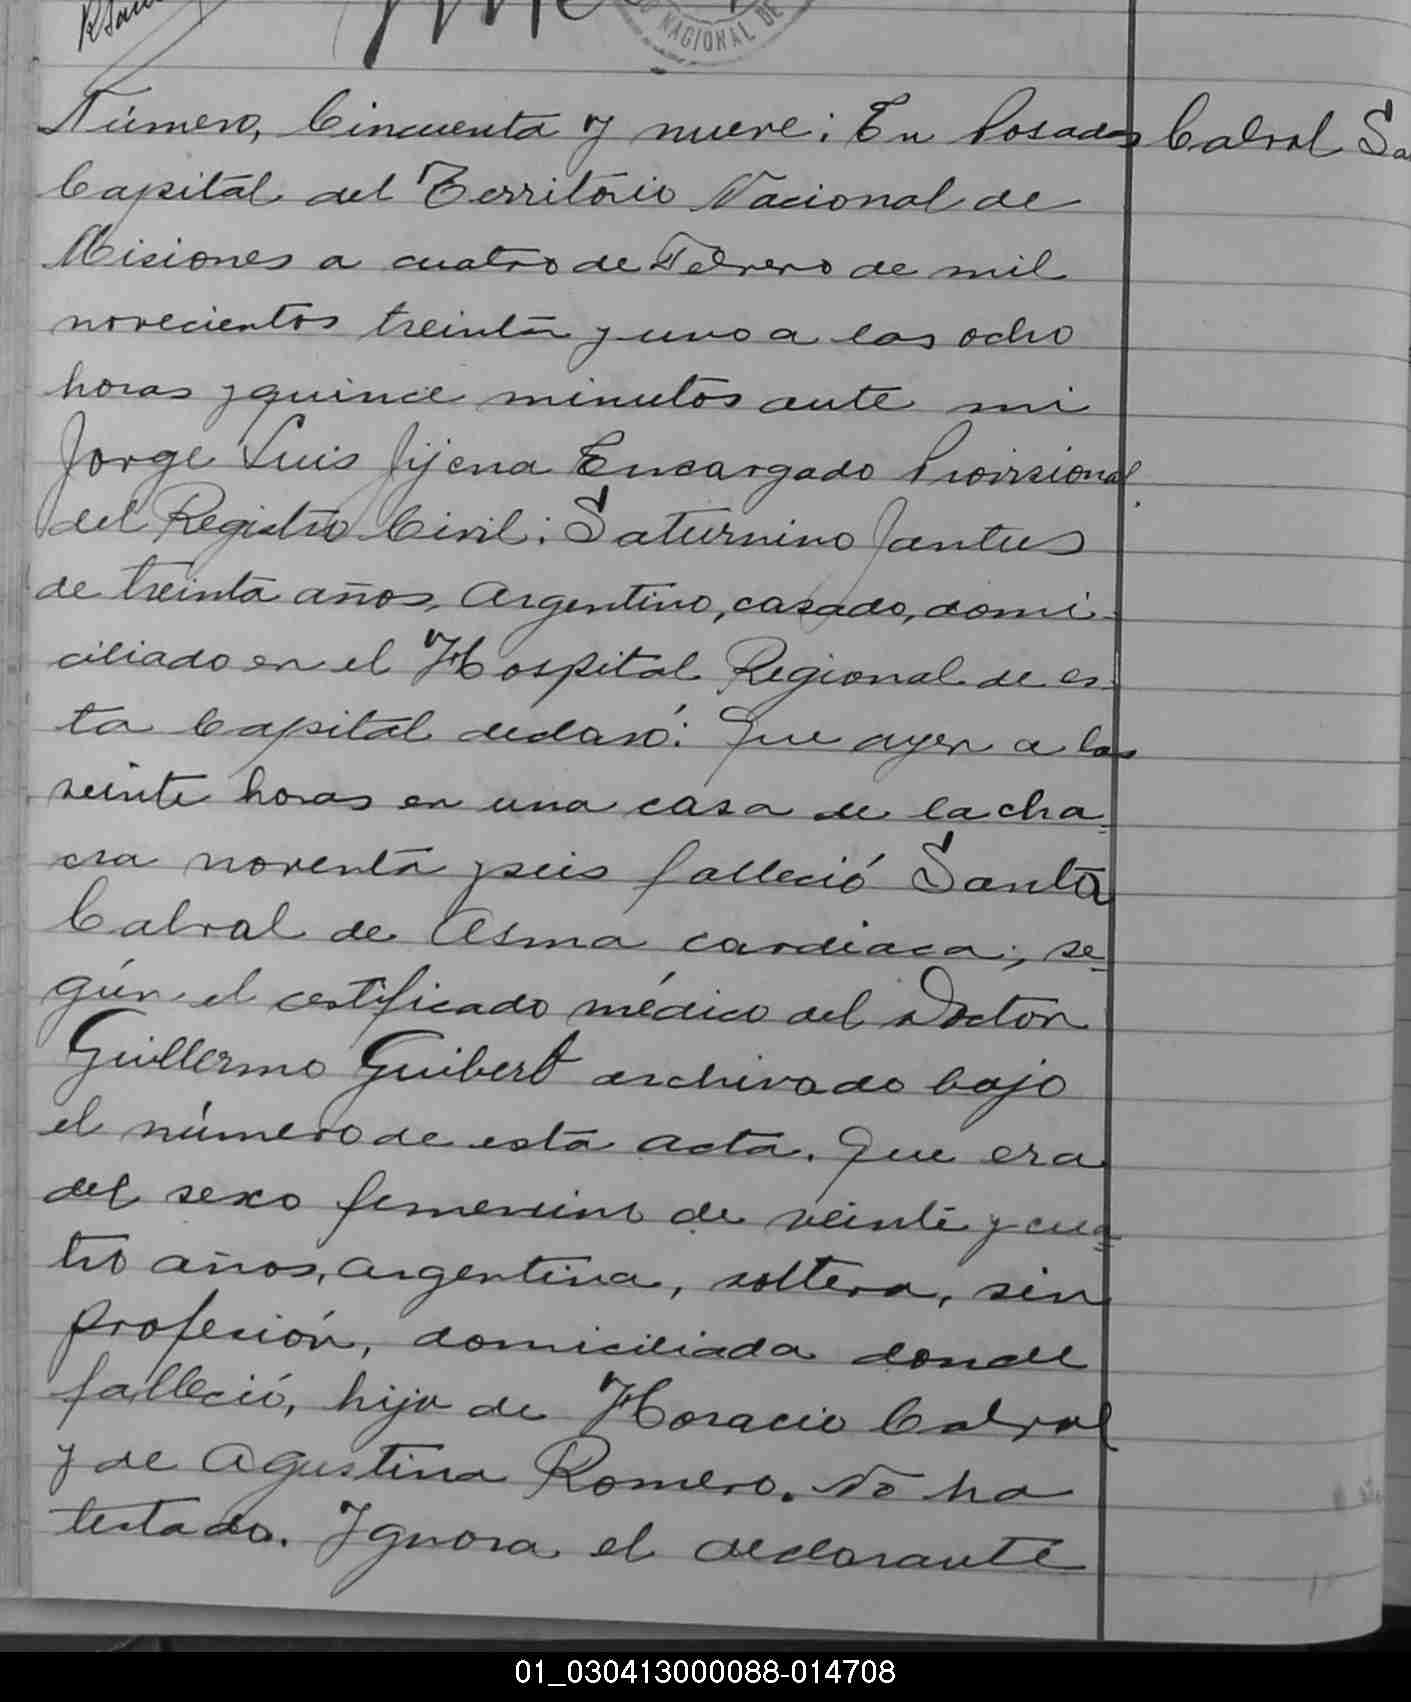 NACIONAL DE
Número, Cincuenta y nueve: En Posadas Cabral Sa
Capital del Território Nacional de
Misiones a cuatro de Febrero de mil
novecientos treinta y uno a las ocho
horas y quince minutos ante mi
Jorge Luis Jijena Encargado Provisional
del Registro Civil: Saturnino Jantus
de treinta años, Argentino, casado, domi-
ciliado en el Hospital Regional de es-
ta Capital declaró: Que ayer a las
veinte horas en una casa de la cha-
cra noventa y seis falleció Santa
Cabral de Asma cardiaca; se-
gún el certificado médico del Doctor
Guillermo Guibert archivado bajo
el número de esta acta. Que era
del sexo femenino de veinte y cua-
tro años, argentina, soltera, sin
profesión, domiciliada donde
falleció, hija de Horacio Cabral
y de Agustina Romero. No ha
testado. Ignora el declarante
01_030413000088-014708